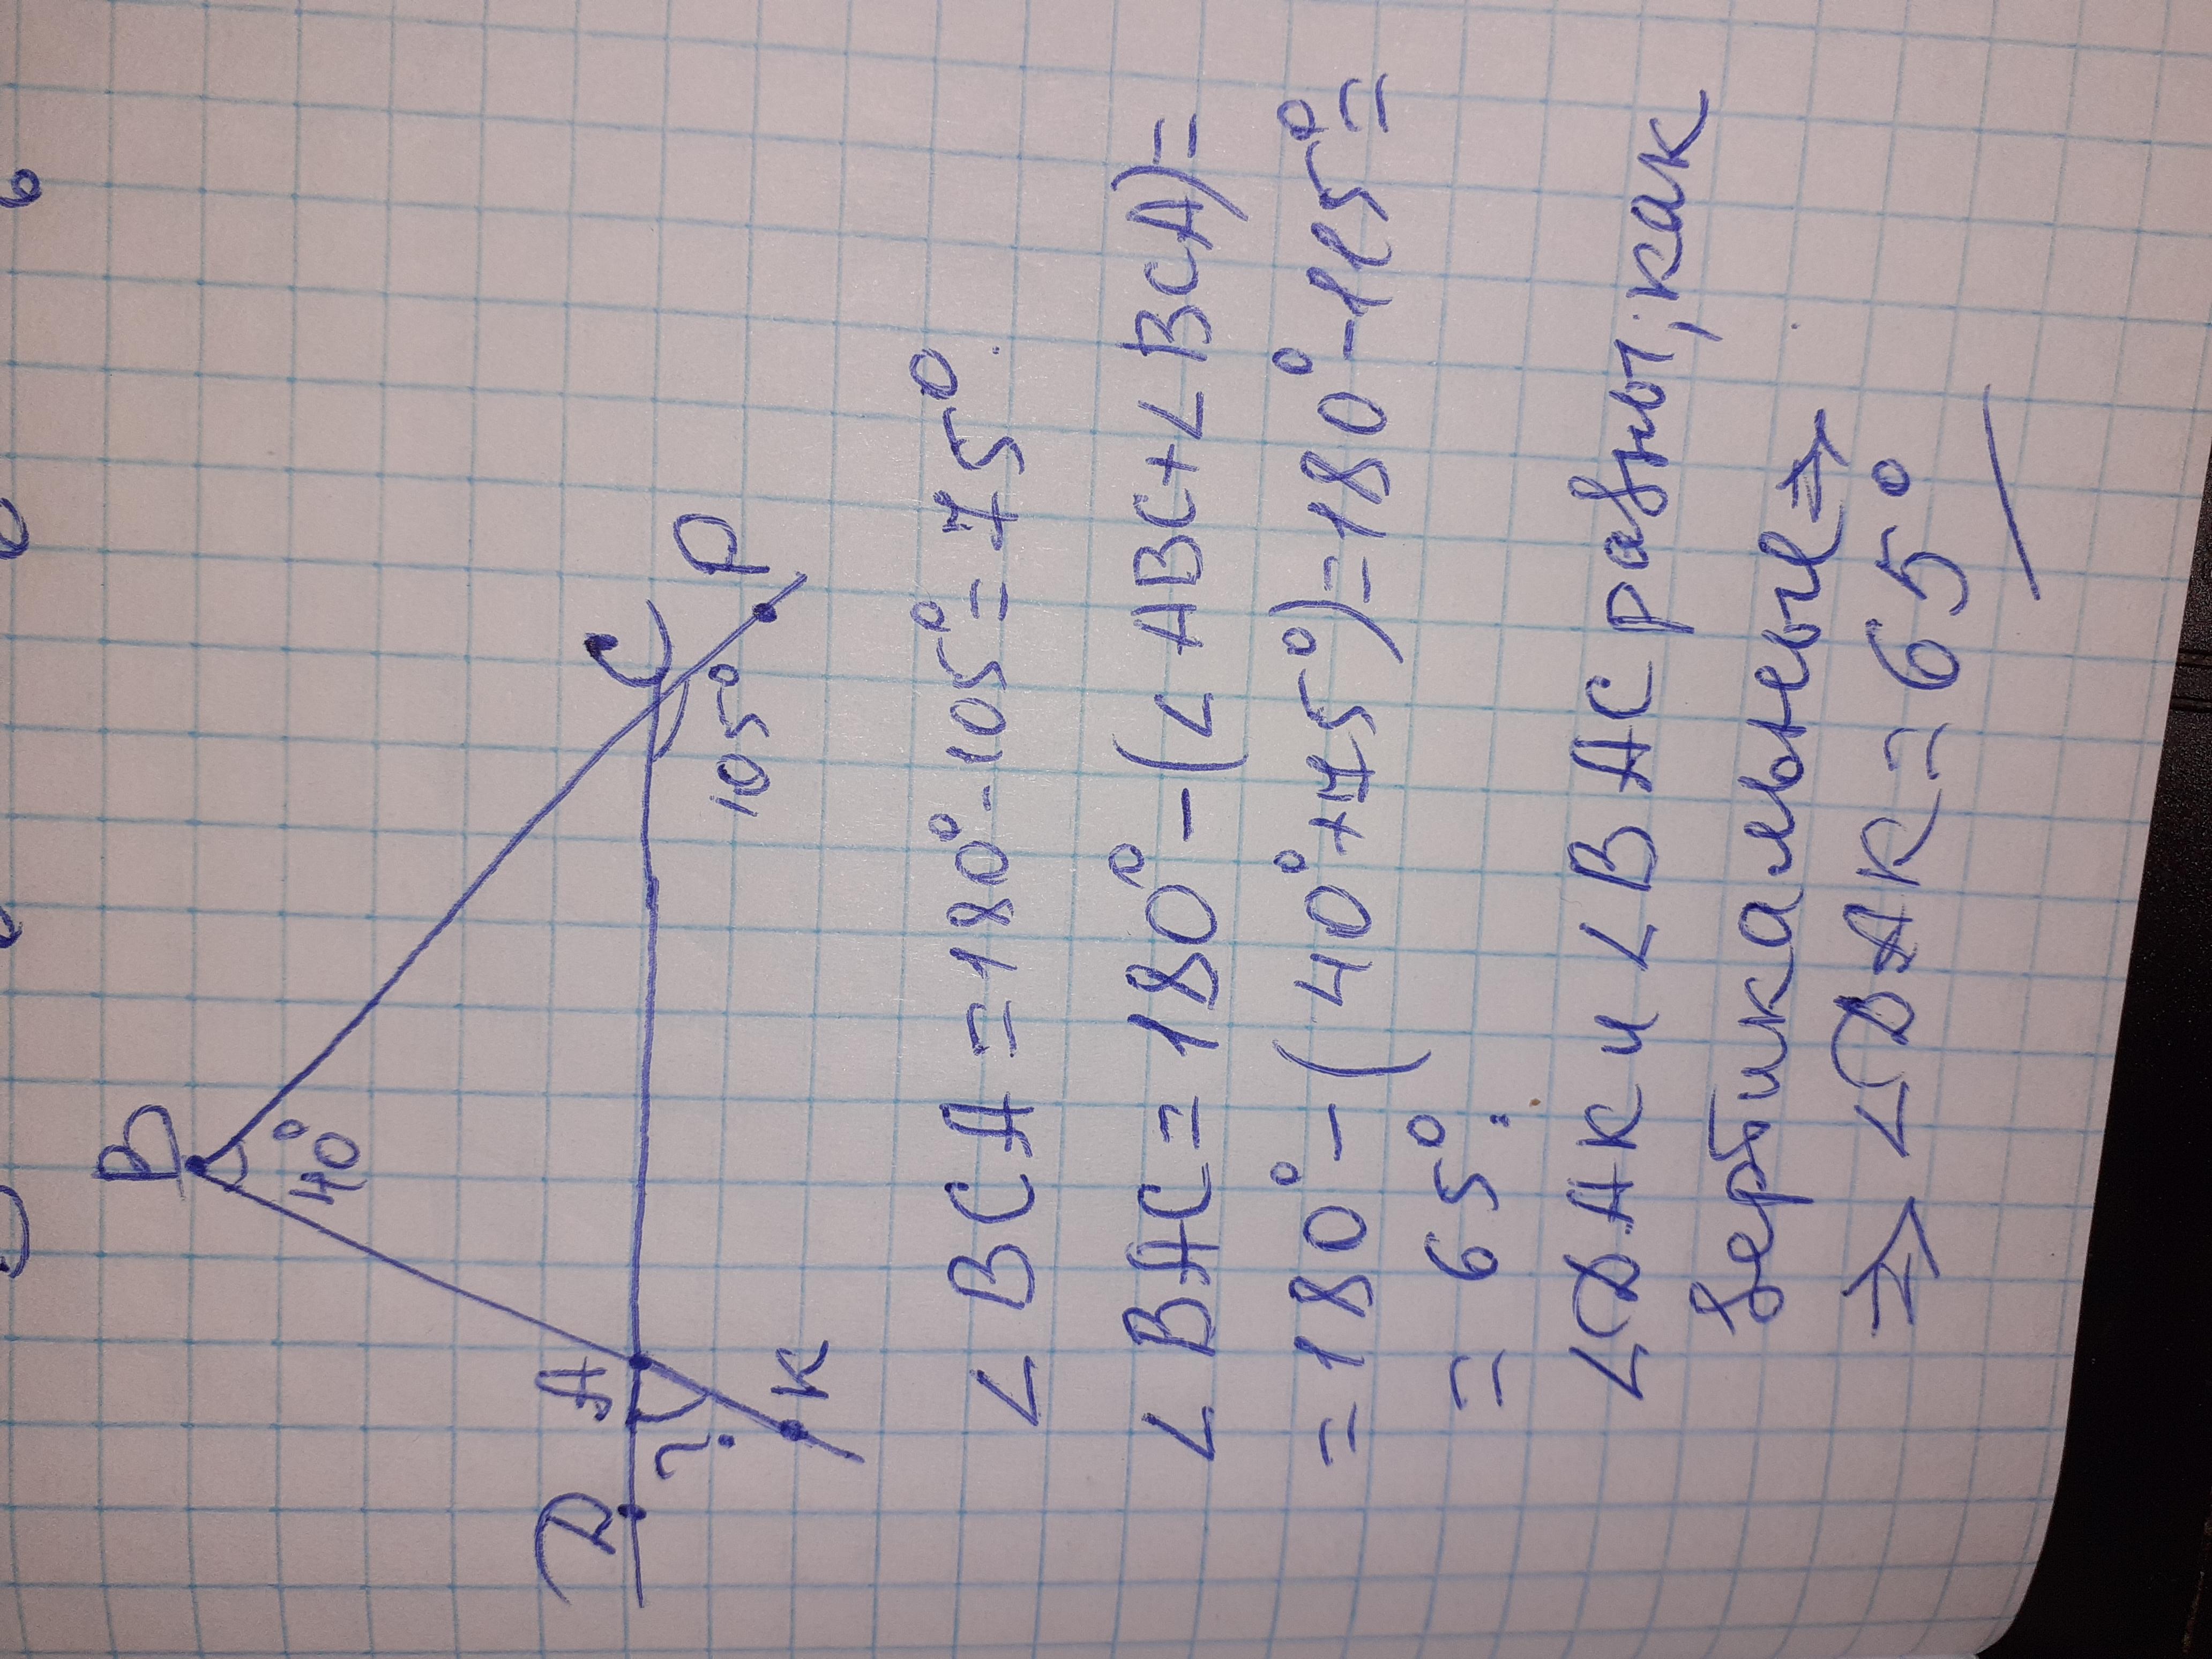 B
40°
A
C
D
?
K
105°
P
∠BCA = 180° - 105° = 75°.
∠BAC = 180° - (∠ABC + ∠BCA) =
= 180° - (40° + 75°) = 180° - 115° =
= 65°.
∠DAK и ∠BAC равны, как
вертикальные ⇒
⇒ ∠DAK = 65°